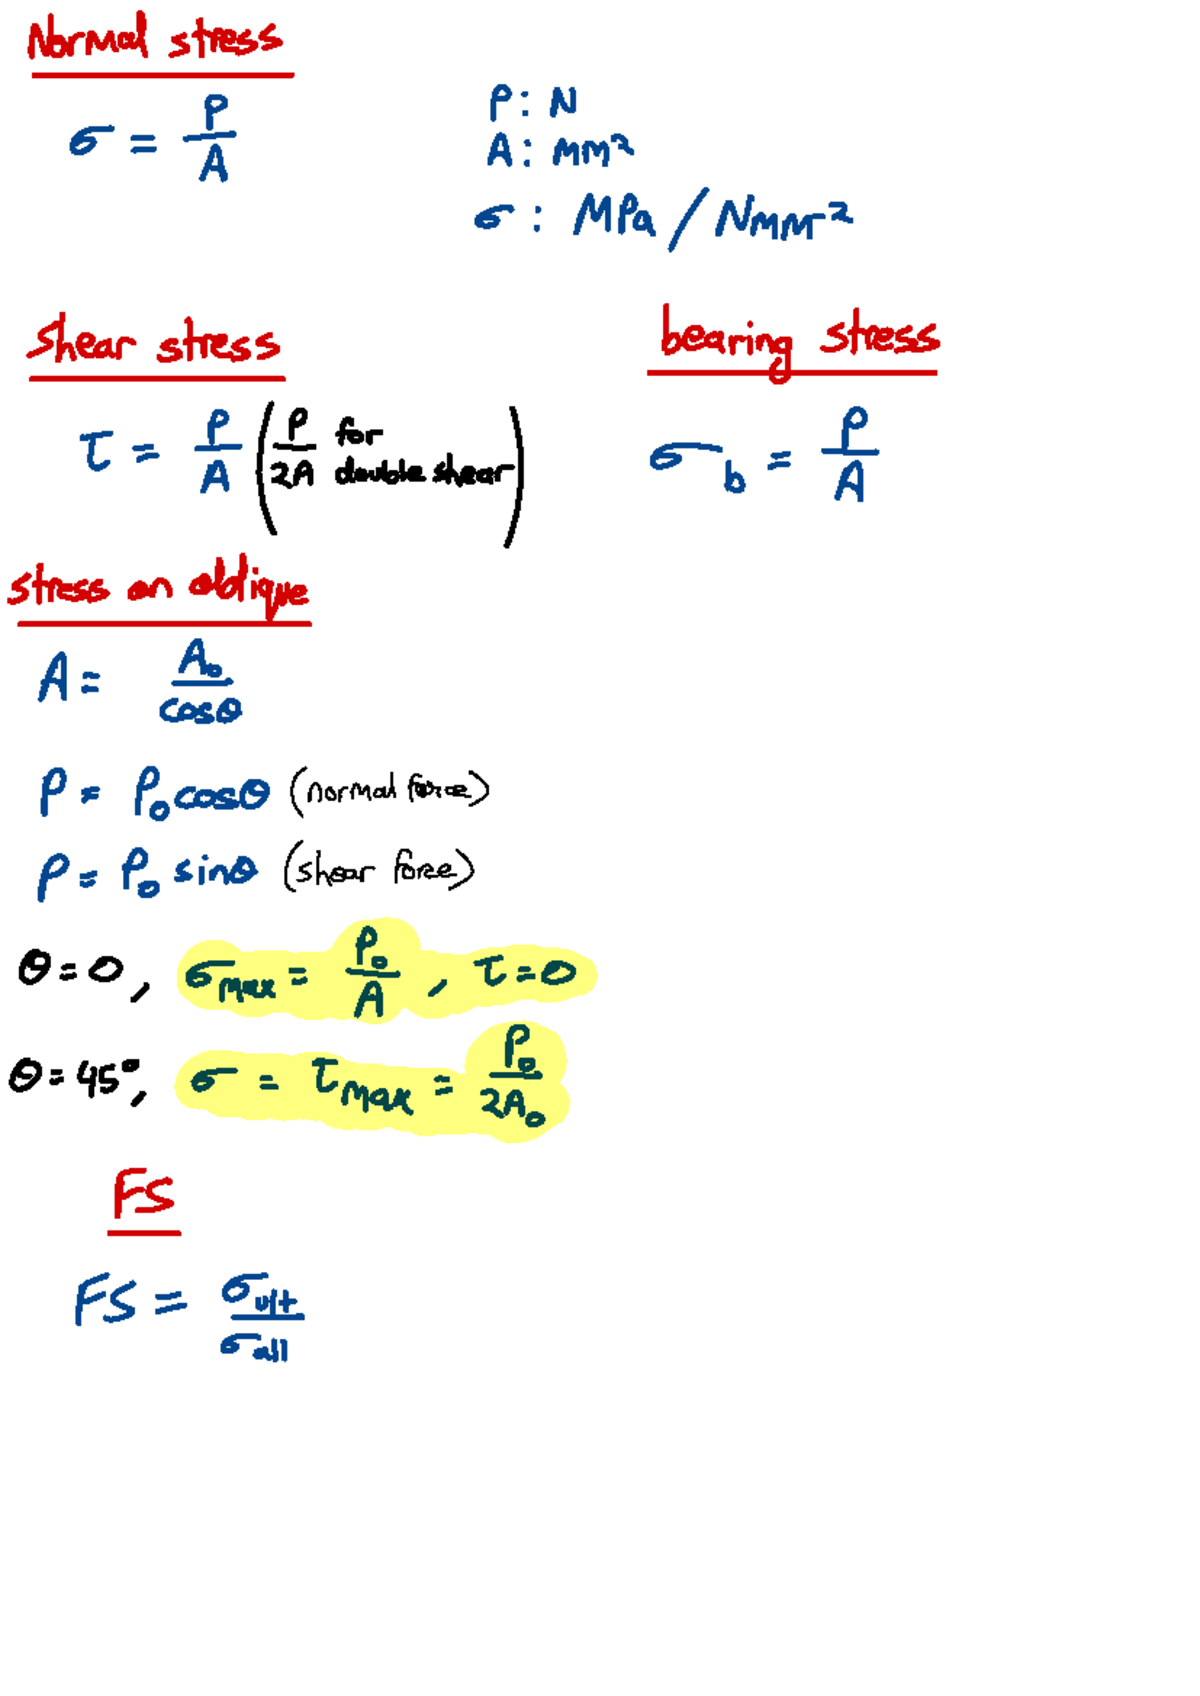 Normal stress
σ = P/A
P: N
A: mm²
σ: MPa / Nmm²
Shear stress
τ = P/A (P/2A for double shear)
bearing stress
σb = P/A
stress on oblique
A = A₀/cosθ
P = P₀ cosθ (normal force)
P = P₀ sinθ (shear force)
θ = 0, σmax = P₀/A, τ = 0
θ = 45°, σ = τmax = P₀/2A₀
FS
FS = σult/σall